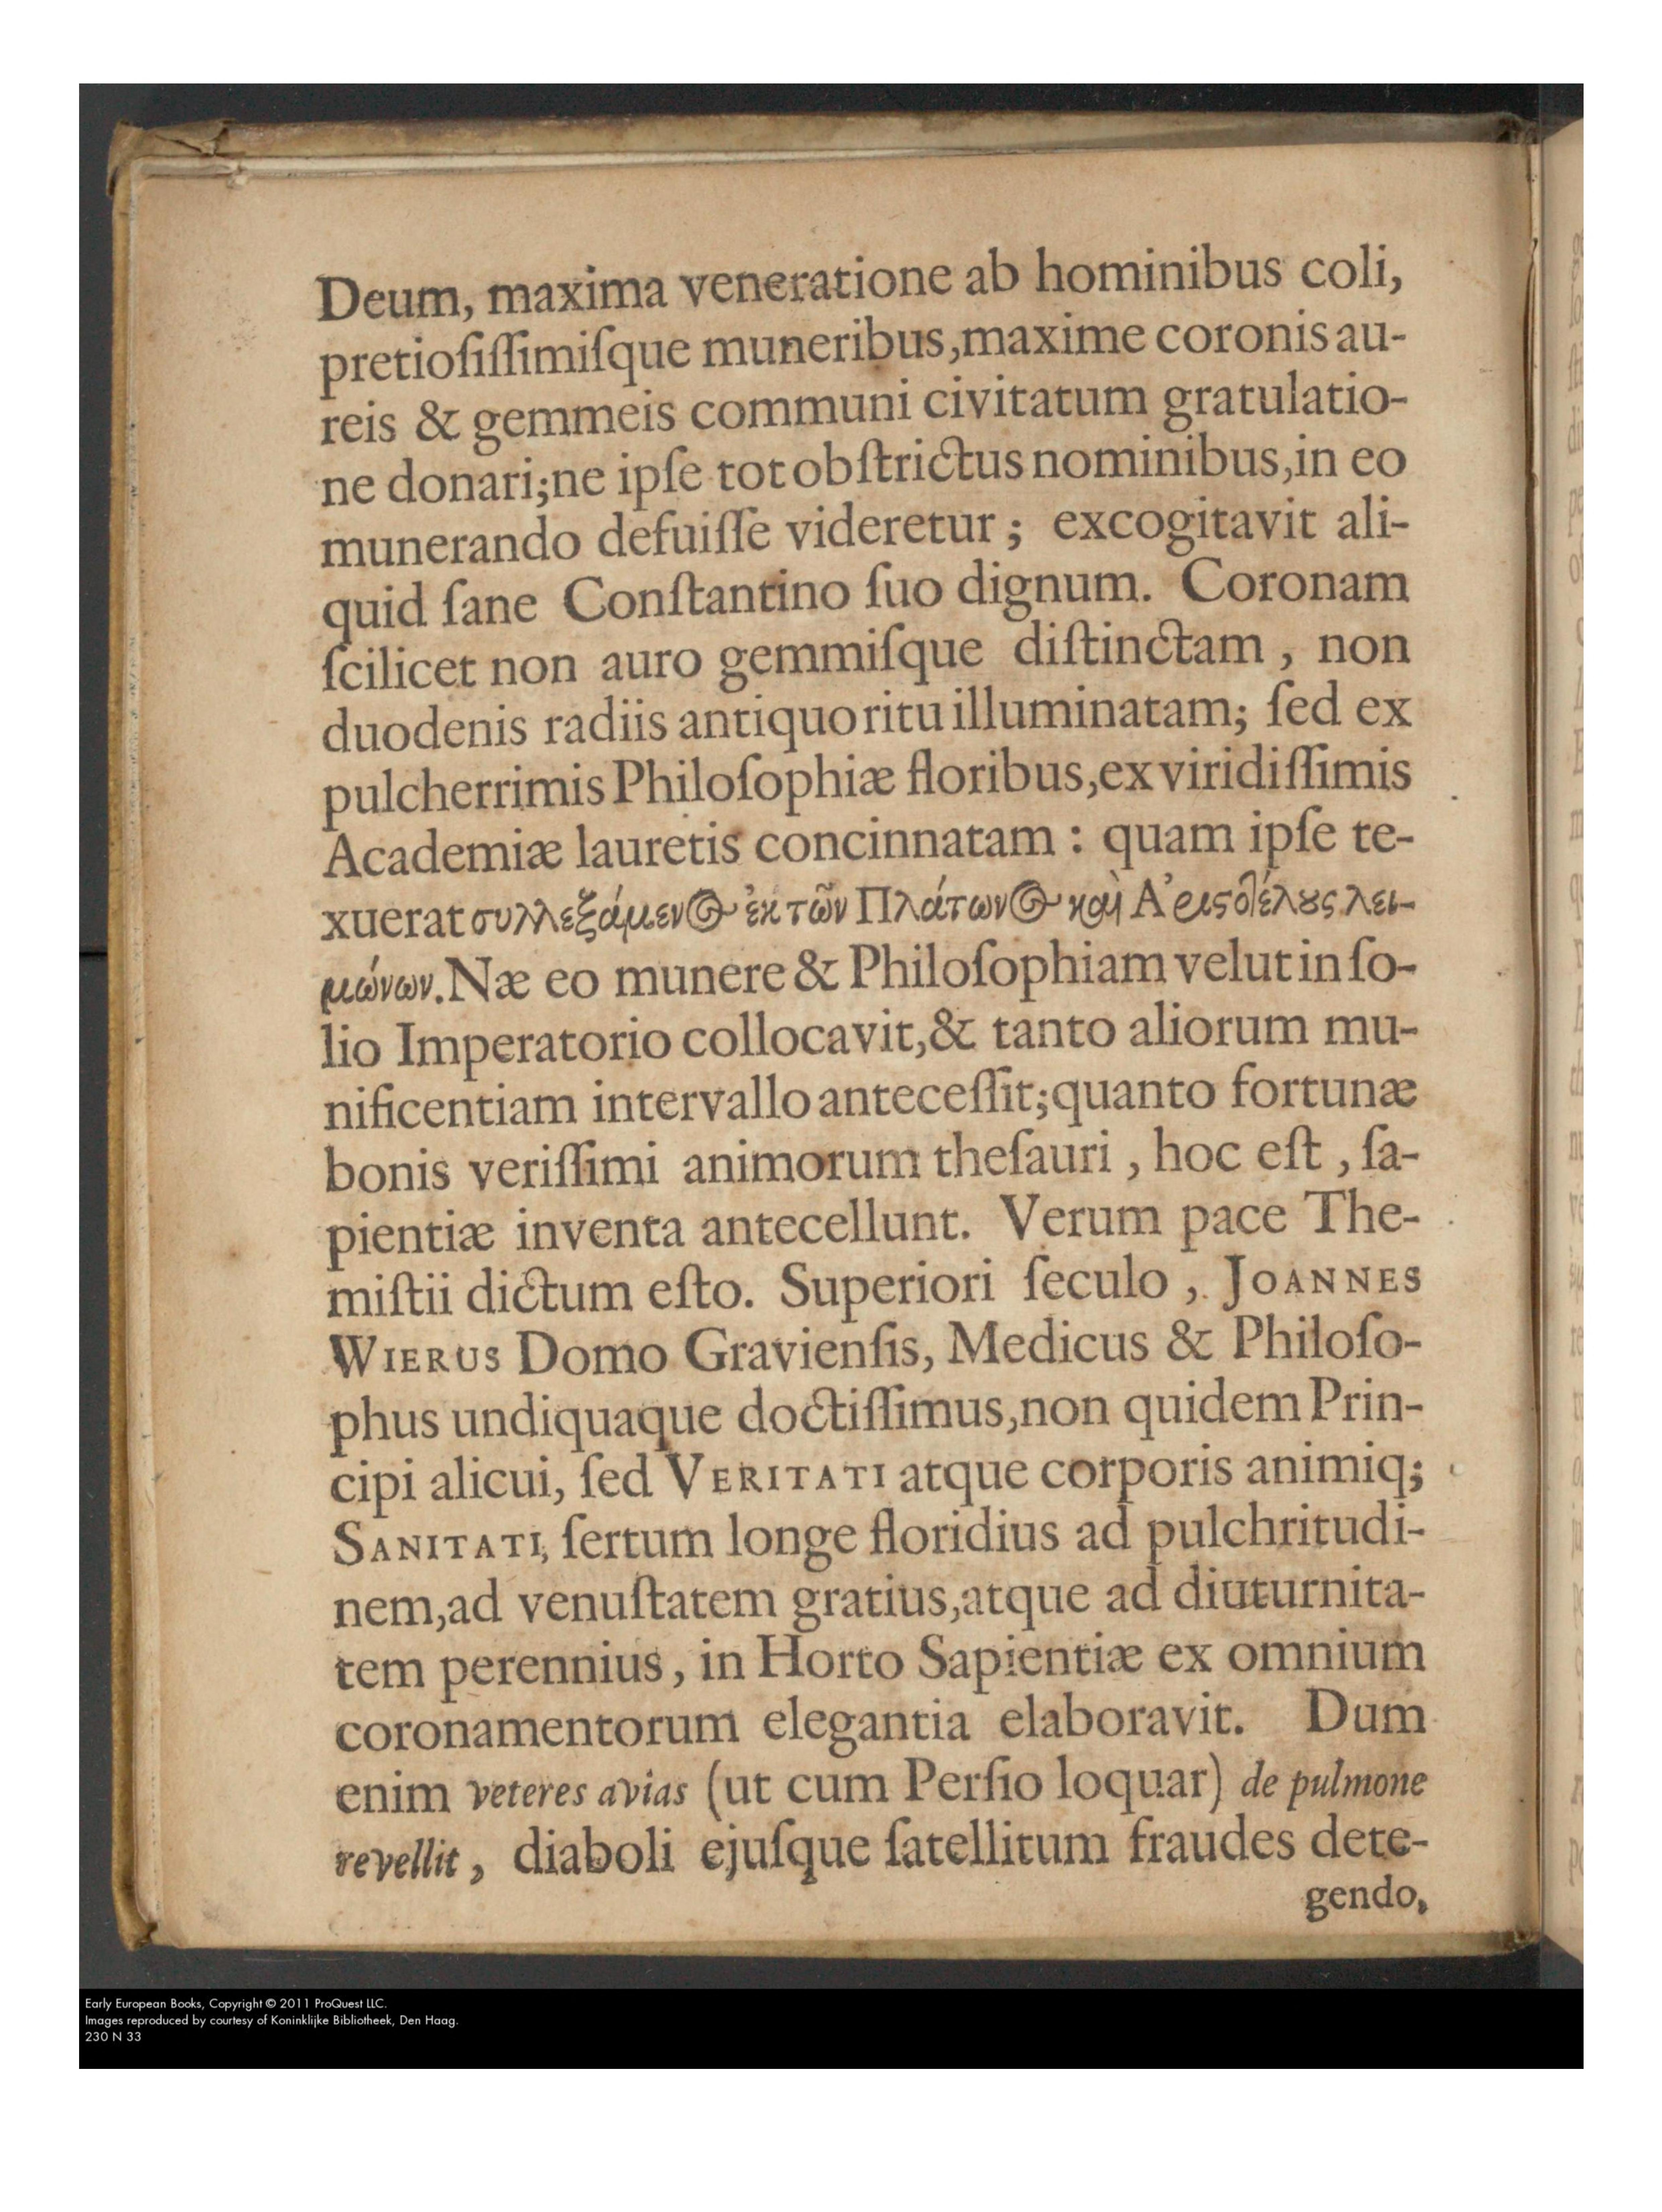 Deum, maxima veneratione ab hominibus coli,
pretioſiſſimiſque muneribus,maxime coronis au-
reis & gemmeis communi civitatum gratulatio-
ne donari;ne ipſe tot obſtrictus nominibus,in eo
munerando defuiſſe videretur; excogitavit ali-
quid ſane Conſtantino ſuo dignum. Coronam
ſcilicet non auro gemmiſque diſtinctam, non
duodenis radiis antiquo ritu illuminatam; ſed ex
pulcherrimis Philoſophiæ floribus,ex viridiſſimis
Academiæ lauretis concinnatam: quam ipſe te-
xuerat συλλεξάμενος ἐκ τῶν Πλάτωνος καὶ Ἀριςοτέλους λει-
μώνων. Næ eo munere & Philoſophiam velut in ſo-
lio Imperatorio collocavit,& tanto aliorum mu-
nificentiam intervallo anteceſſit;quanto fortunæ
bonis veriſſimi animorum theſauri, hoc eſt, ſa-
pientiæ inventa antecellunt. Verum pace The-
miſtii dictum eſto. Superiori ſeculo, JOANNES
WIERUS Domo Gravienſis, Medicus & Philoſo-
phus undiquaque doctiſſimus,non quidem Prin-
cipi alicui, ſed VERITATI atque corporis animiq;
SANITATI, ſertum longe floridius ad pulchritudi-
nem,ad venuſtatem gratius,atque ad diuturnita-
tem perennius, in Horto Sapientiæ ex omnium
coronamentorum elegantia elaboravit. Dum
enim veteres avias (ut cum Perſio loquar) de pulmone
revellit, diaboli ejuſque ſatellitum fraudes dete-
gendo,
Early European Books, Copyright © 2011 ProQuest LLC.
Images reproduced by courtesy of Koninklijke Bibliotheek, Den Haag.
230 N 33